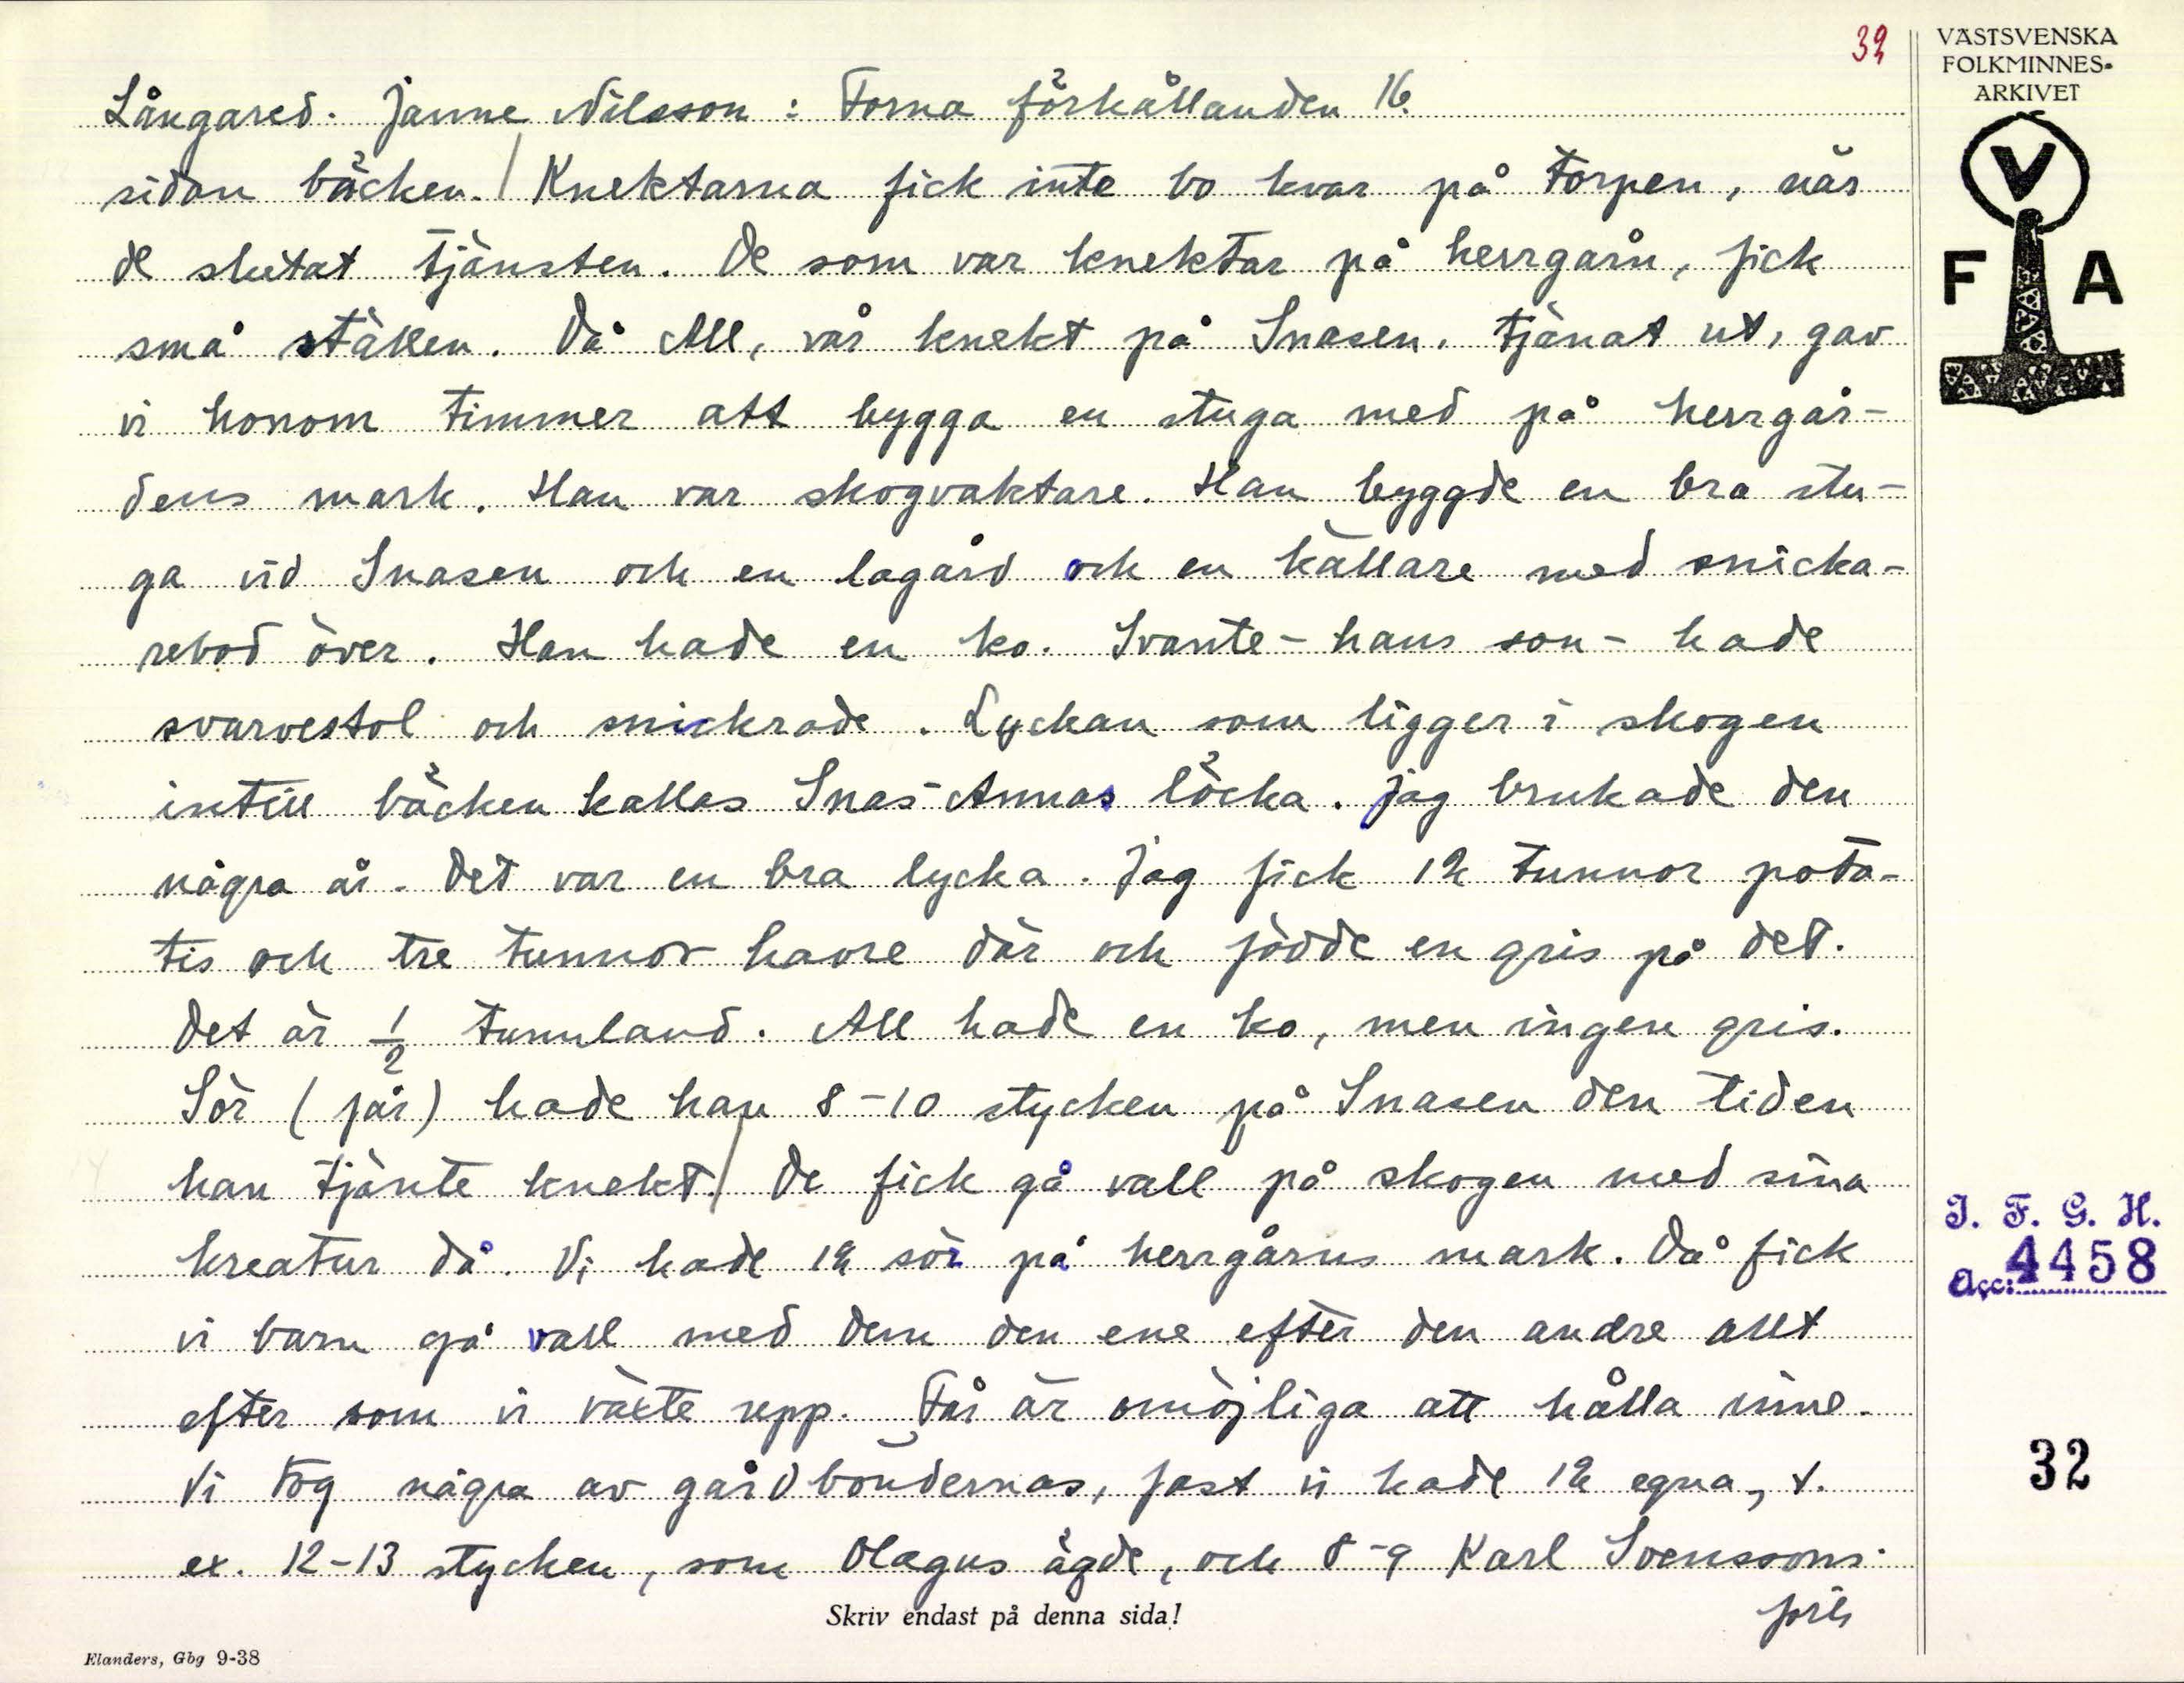 32
VÄSTSVENSKA
FOLKMINNES-
ARKIVET
V
F A
Långared. Janne Nilsson: Forna förhållanden 16.
sidan bäcken. / Knektarna fick inte bo kvar på torpen, när
de slutat tjänsten. De som var knektar på herrgårn, fick
små ställen. Då All, vår knekt på Snasen, tjänat ut, gav
vi honom timmer att bygga en stuga med på herrgår-
dens mark. Han var skogvaktare. Han byggde en bra stu-
ga vid Snasen och en lagård och en källare med snicka-
rebod över. Han hade en ko. Svante - hans son - hade
svarvestol och snickrade. Lyckan som ligger i skogen
intill bäcken kallas Snas-Annas löcka. Jag brukade den
några år. Det var en bra lycka. Jag fick 12 tunnor pota-
tis och tre tunnor havre där och födde en gris på det.
Det är 1/2 tunnland. All hade en ko, men ingen gris.
Sör (får) hade han 8-10 stycken på Snasen den tiden
han tjänte knekt. / De fick gå vall på skogen med sina
kreatur då. Vi hade 12 sör på herrgårns mark. Då fick
vi barn gå vall med dem den ene efter den andre allt
efter som vi växte upp. Får är omöjliga att hålla inne.
Vi tog några av gårdböndernas, fast vi hade 12 egna, t.
ex. 12-13 stycken, som Olagus ägde, och 8-9 Karl Svenssons.
Skriv endast på denna sida!
Elanders, Gbg 9-38
I. F. G. H.
Acc: 4458
32